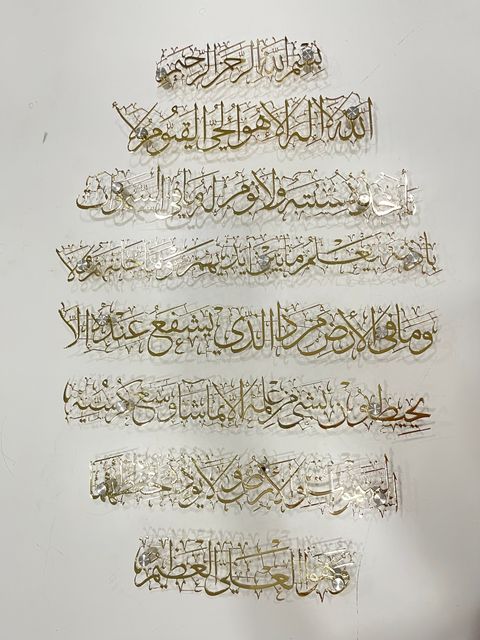 بسم الله الرحمن الرحيم
الله لا إله إلا هو الحي القيوم لا
تأخذه سنة ولا نوم له ما في السموات
بإذنه يعلم ما بين أيديهم وما خلفهم ولا
وما في الأرض من ذا الذي يشفع عنده إلا
يحيطون بشيء من علمه إلا بما شاء وسع كرسيه
السموات والأرض ولا يؤده حفظهما
وهو العلي العظيم